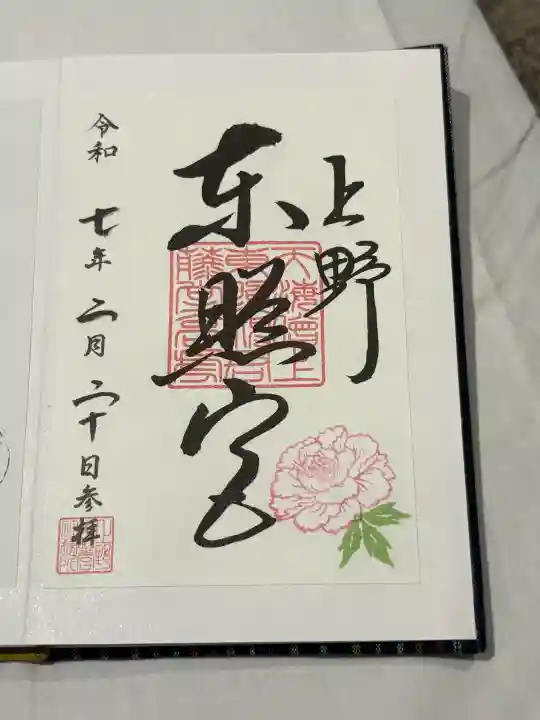 上野
東照宮
令和 七年 二月 二十日参拝